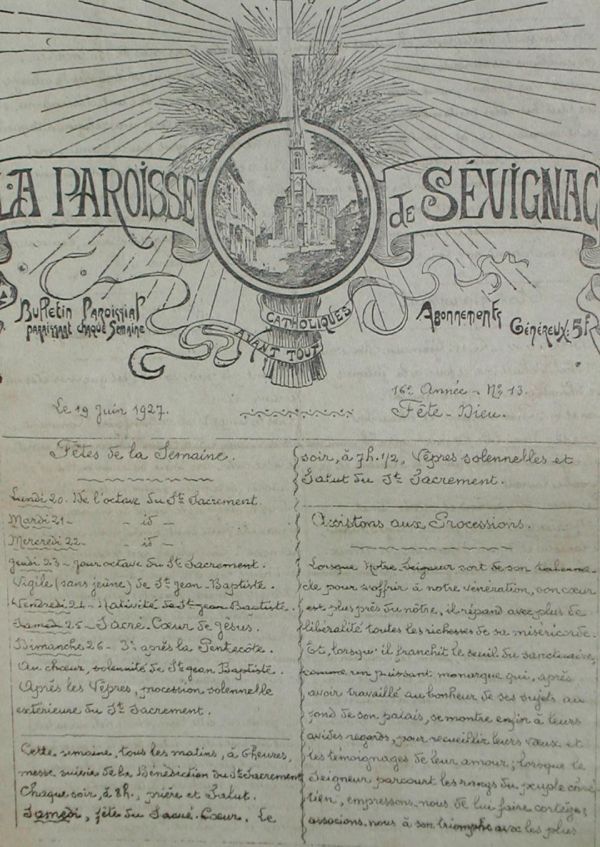 LA PAROISSE
de SÉVIGNAC
Bulletin Paroissial
paraissant chaque Semaine
CATHOLIQUES
AVANT TOUT
Abonnements
Généreux: 5f
Le 19 Juin 1927.
16e Année - No 13.
Fête-Dieu.
Fêtes de la Semaine.
Lundi 20. De l'octave du St Sacrement.
Mardi 21 - - id -
Mercredi 22 - - id -
Jeudi 23 - Jour octave du St Sacrement.
Vigile (sans jeûne) de St Jean-Baptiste.
Vendredi 24 - Nativité de St Jean Baptiste.
Samedi 25 - Sacré-Cœur de Jésus.
Dimanche 26 - 3e après la Pentecôte.
Au chœur, solennité de St Jean Baptiste.
Après les Vêpres, procession solennelle
extérieure du St Sacrement.
Cette semaine, tous les matins, à 6 heures,
messe suivie de la Bénédiction du St Sacrement
Chaque soir, à 8h., prière et Salut.
Samedi, fête du Sacré-Cœur. Le
soir, à 7h. 1/2, Vêpres solennelles et
Salut du St Sacrement.
Assistons aux Processions.
Lorsque Notre Seigneur sort de son taberna-
cle pour s'offrir à notre vénération, son cœur
est plus près du nôtre, il répand avec plus de
libéralité toutes les richesses de sa miséricorde.
Et, lorsqu'il franchit le seuil du sanctuaire,
comme un puissant monarque qui, après
avoir travaillé au bonheur de ses sujets au
fond de son palais, se montre enfin à leurs
avides regards, pour recueillir leurs vœux et
les témoignages de leur amour; lorsque le
Seigneur parcourt les rangs du peuple chré-
tien, empressons-nous de lui faire cortège;
associons-nous à son triomphe avec les plus